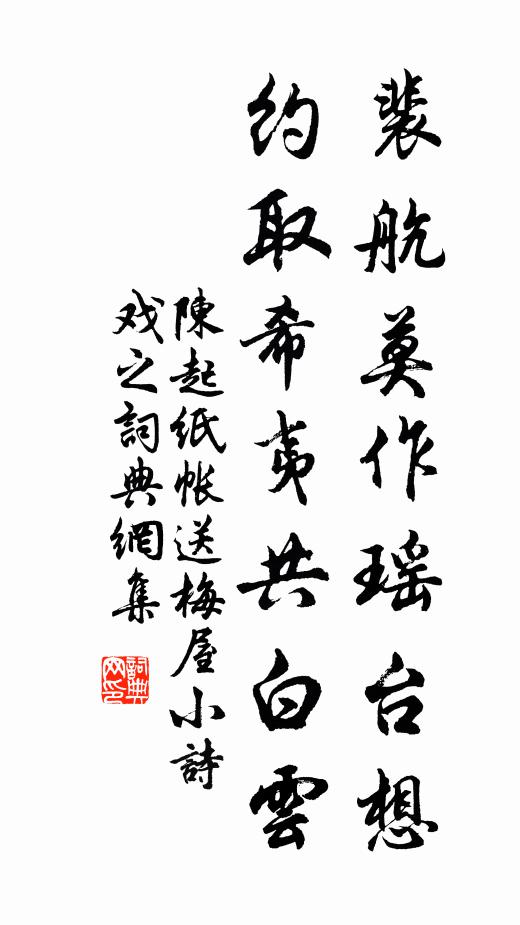 裴航莫作瑶台想
约取希夷共白雲
陳起紙帳送梅屋小詩
戏之詞典網集
詞典網印